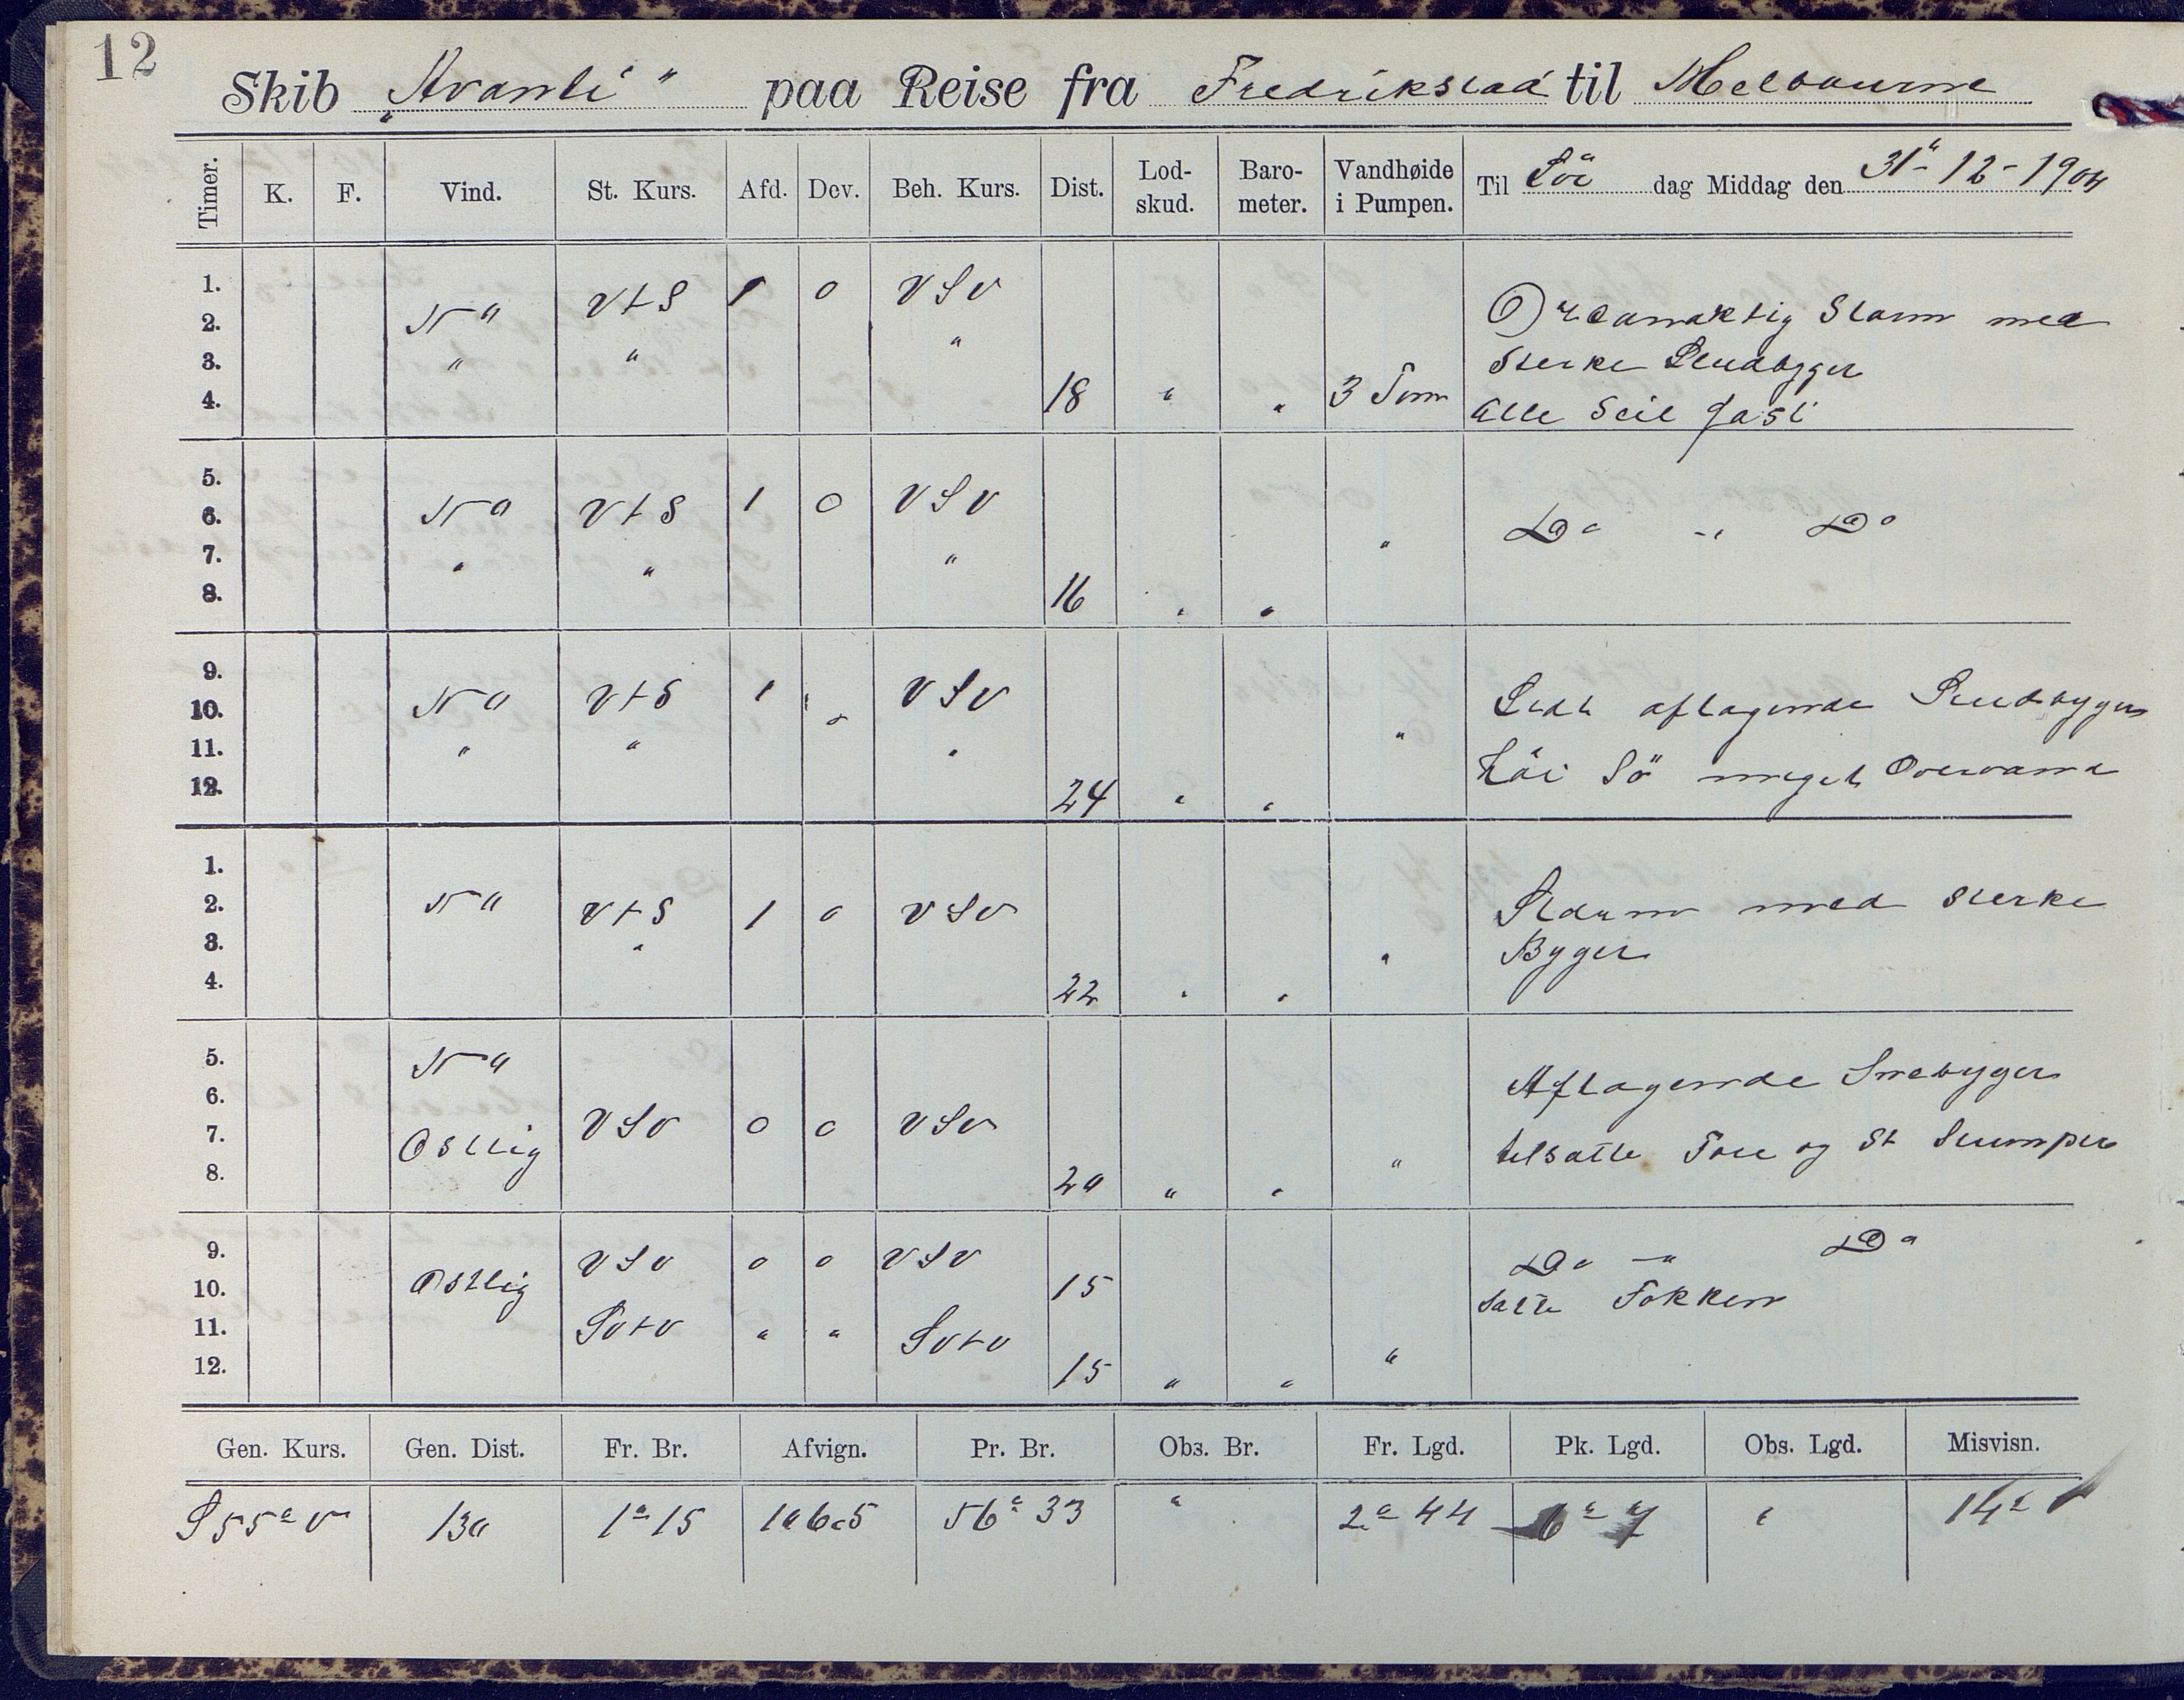 12
Skib "Avanti" paa Reise fra Fredrikstad til Melbourne
Timer. K. F. Vind. St. Kurs. Afd. Dev. Beh. Kurs. Dist. Lod-skud. Baro-meter. Vandhøide i Pumpen. Til Lör dag Middag den 31"-12-1904
1.
2. NO VtS 1 0 VSV Orkanaktig Storm med
3. " " " sterke Sludbyger
4. 18 " " 3 Tom alle Seil fast
5.
6. NO VtS 1 0 VSV Do " Do
7. " " " "
8. 16 " "
9.
10. NO VtS 1 0 VSV Lidt aftagende Sludbyger
11. " " " " høi Sö meget Overvand
12. 24 " "
1.
2. NO VtS 1 0 VSV Storm med sterke
3. " " Byger
4. 22 " "
5. NO
6. Aftagende Snebyger
7. Ostlig VSV 0 0 VSV " tilsatte Fore og St Stumper
8. 20 " "
9. VSV 0 0 VSV Do " Do
10. Ostlig 15 satte Fokken
11. SVtV " " SVtV
12. 15 " " "
Gen. Kurs. Gen. Dist. Fr. Br. Afvign. Pr. Br. Obs. Br. Fr. Lgd. Pk. Lgd. Obs. Lgd. Misvisn.
S55°V 130 1°15 106.5 56°33 " 2°44 6°7 " 14°V